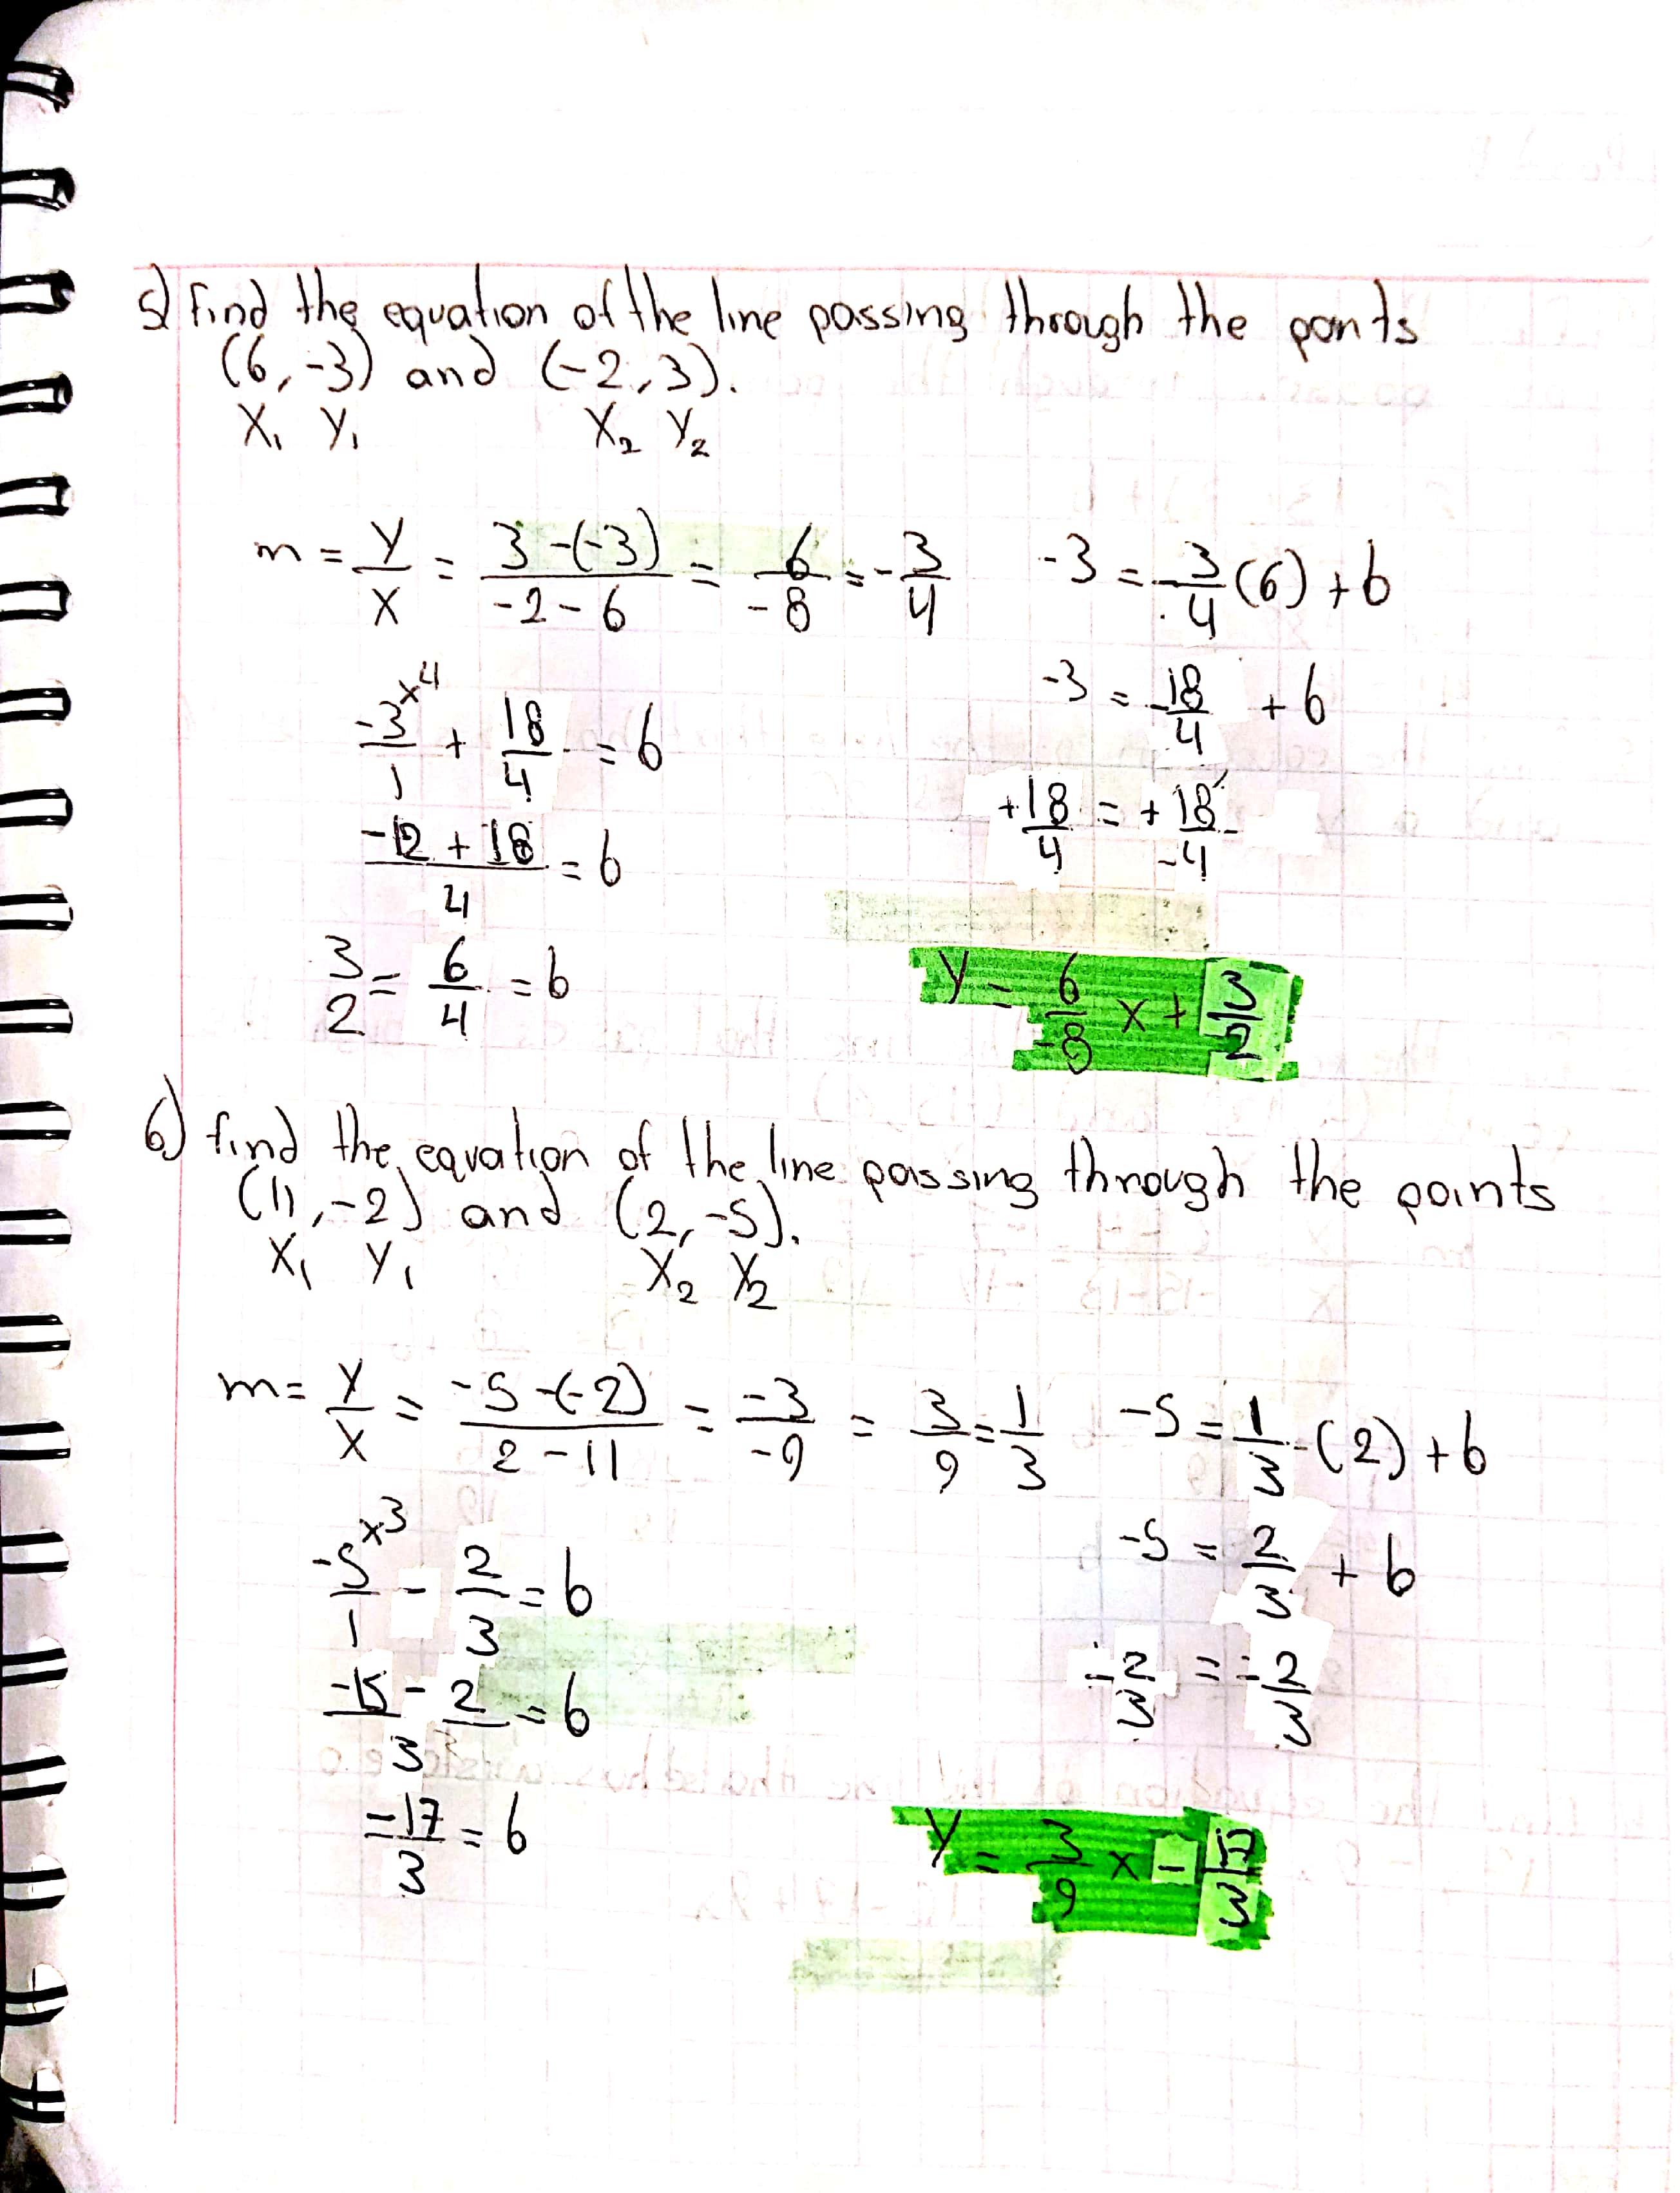 5) find the equation of the line passing through the ponts
(6, -3) and (-2, 3).
X₁ Y₁ X₂ Y₂
m = Y/X = 3-(-3)/-2-6 = 6/-8 = -3/4 -3 = -3/4 (6) + b
-3/1 ×4 + 18/4 = b -3 = -18/4 + b
-12 + 18/4 = b +18/4 = +18/-4
3/2 = 6/4 = b y = 6/-8 x + 3/2
6) find the equation of the line passing through the points
(11, -2) and (2, -5).
X₁ Y₁ X₂ Y₂
m = Y/X = -5-(-2)/2-11 = -3/-9 = 3/9 = 1/3 -5 = 1/3 (2) + b
-5/1 ×3 - 2/3 = b -5 = 2/3 + b
-15 - 2/3 = b -2/3 = -2/3
-17/3 = b y = 3/9 x - 17/3